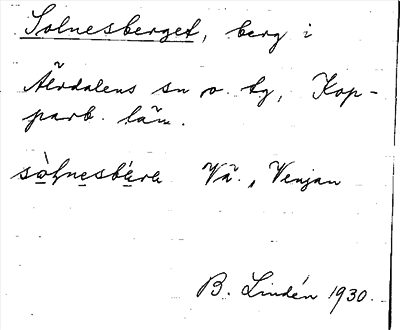 Solnesberget, berg i
Älvdalens sn o. tg, Kop-
parb. län.
sòlnesbárɛ Vä., Venjan
B. Lindén 1930.